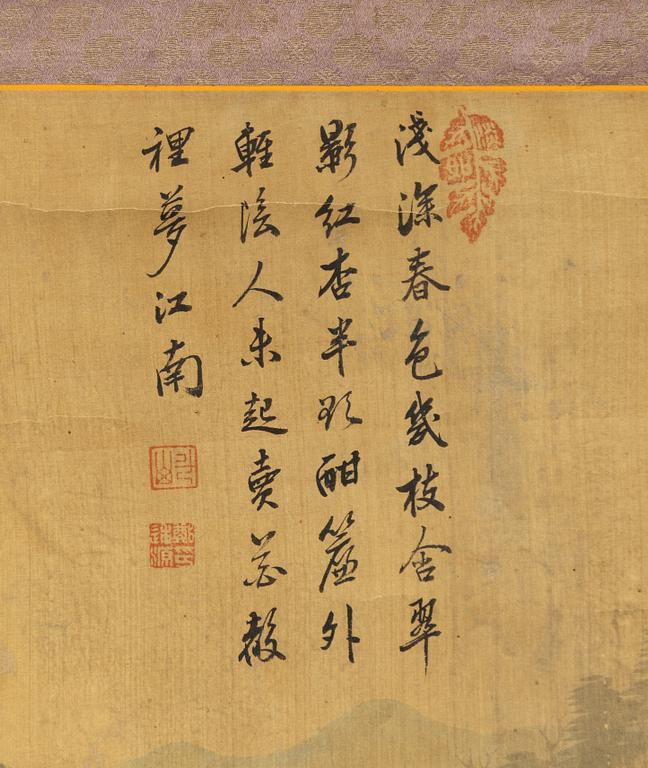 淺深春色幾枝含翠
影紅香半欲酣簾外
輕陰人未起賣花聲
裡夢江南